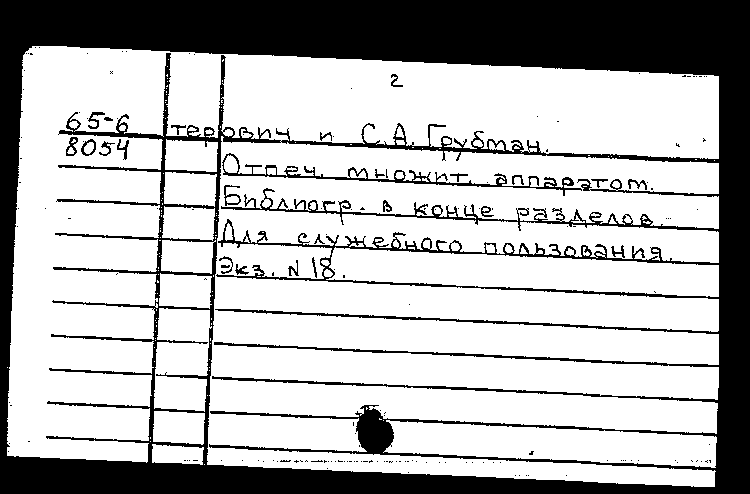 2
65-6
8054
терович и С.А. Грубман.
Отпеч. множит. аппаратом.
Библиогр. в конце разделов.
Для служебного пользования.
Экз. N 18.